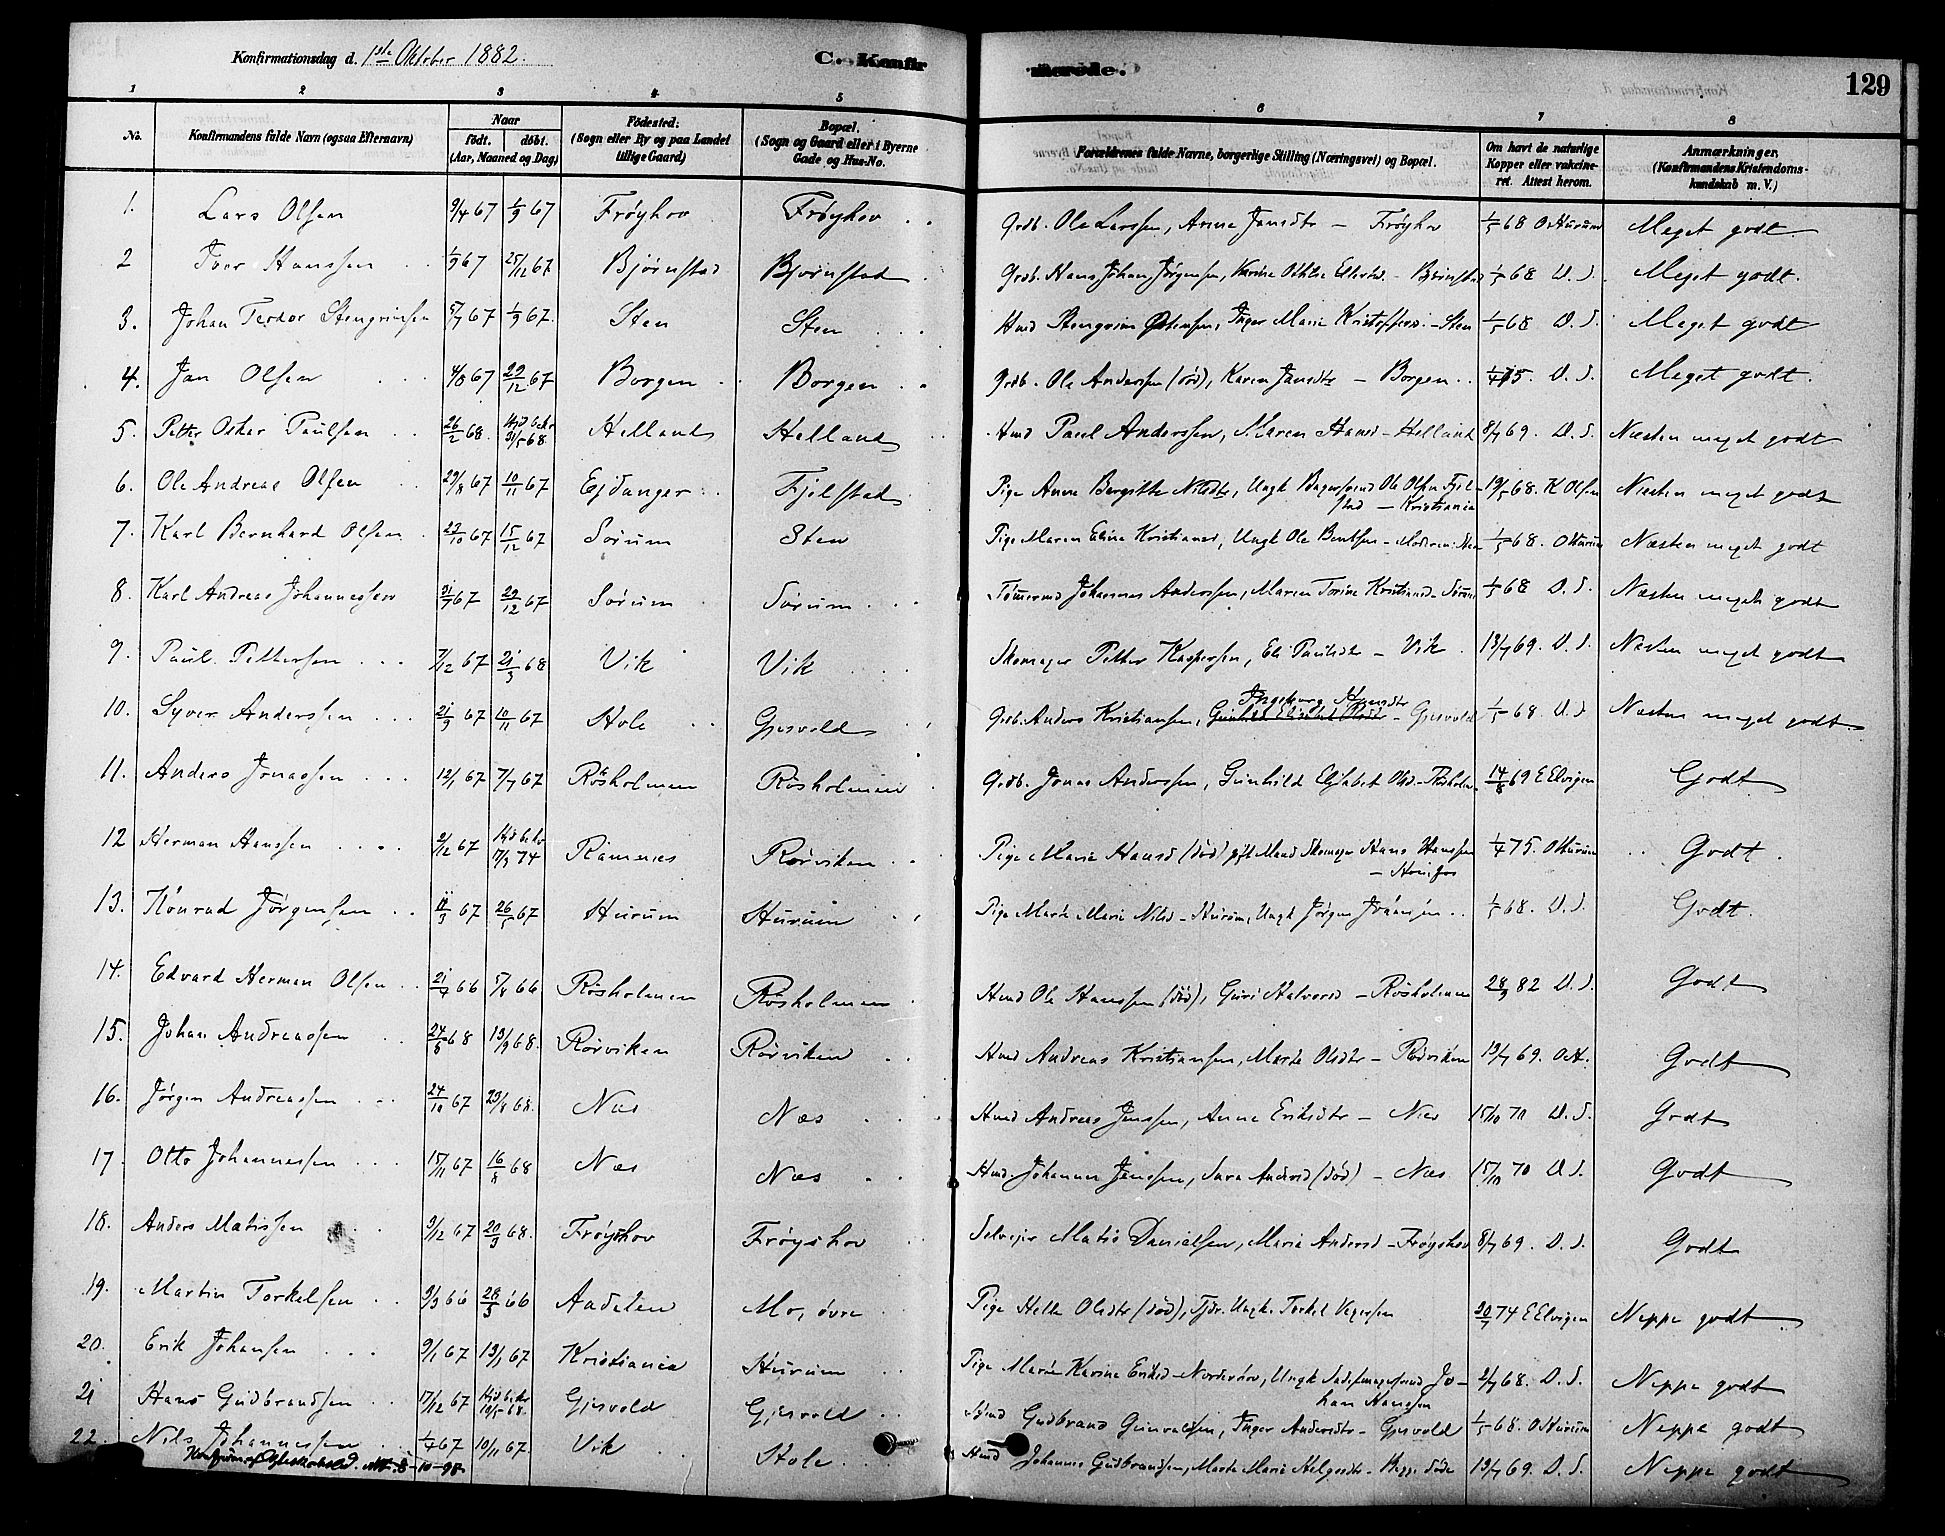 Konfirmationsdag d. 1ste Oktober 1882. C. Konfirmerede. 129
1 2 3 4 5 6 7 8
No. Konfirmandens fulde Navn (ogsaa Efternavn) Naar født. døbt. (Aar, Maaned og Dag) Fødested: (Sogn eller By og paa Landet tillige Gaard) Bopæl. (Sogn og Gaard eller i Byerne Gade og Hus-No. Forældrenes fulde Navne, borgerlige Stilling (Næringsvei) og Bopæl. Om havt de naturlige Kopper eller vakcineret. Attest herom. Anmærkninger, (Konfirmandens Kristendomskundskab m. V.)
1. Lars Olsen 9/4 67 1/9 67 Frøyhov Frøyhov Grdb. Ole Larssen, Anne Jansdtr – Frøyhov 1/5 68 O Hurum Meget godt.
2 Iver Hanssen 1/9 67 25/12 67 Bjørnstad Bjørnstad Grdb. Hans Johan Jørgensen, Karine – Bjørnstad 1/5 68 D. S. Meget godt.
3. Johan Teodor Stengrimsen 5/7 67 1/9 67. Sten Sten Hmd Stengrim Østensen, Inger Marie Kristoffersd. – Sten 1/5 68 D. S. Meget godt
4. Jan Olsen 4/8 67 29/12 67 Borgen Borgen Grdb. Ole Anderssen (død), Karen Jansdtr – Borgen 1/4 75. D. S. Meget godt.
5. Petter Oskar Paulsen 26/2 68. Hjd bekr 31/5 68 Helland Helland Hmd Paul Anderssen, Maren Hansd – Helland 8/7 69. D. S. Næsten meget godt
6. Ole Andreas Olsen 29/8 67 10/11 67 Ejdanger Fjelstad Pige Anne Bergitte Nilsdtr, Ungk Bagersvend Ole Olsen Fjelstad – Kristiania 19/5 68. K Olsen Næsten meget godt
7. Karl Bernhard Olsen 23/10 67 15/12 67 Sørum Sten Pige Maren Eline Kristiansd, Ungk Ole Berntsen – Moderen: Sten 1/5 68. O Hurum Næsten meget godt
8. Karl Andreas Johannessen 31/7 67 29/12 67 Sørum Sørum Tømmermd Johannes Anderssen, Maren Torine Kristiansd – Sørum 1/5 68 D. S. Næsten meget godt
9. Paul Pettersen 7/12 67 21/3 68 Vik Vik Skomager Petter Kaspersen, Eli Paulsdtr – Vik 13/7 69. D. S. Næsten meget godt
10. Syver Anderssen 21/9 67 10/11 67 Hole Gjesvold Grdb. Anders Kristiansen, Gunhild Elisabet Olsdtr Ingeborg Hansdtr – Gjesvold 1/5 68. D. S Næsten meget godt.
11. Anders Jonassen 12/1 67 7/7 67 Røsholmen Røsholmen Grdb. Jonas Anderssen, Gunhild Elisabet Olsd – Røsholm 14/8 69 E Elvigen Godt
12 Herman Hanssen 2/12 67 Hjd bekr 17/3 74 Ramnes Rørviken Pige Marie Hansd (død) gift Mand Skomager Hans Hanssen – Hønefos 1/4 75. O Hurum Godt.
13. Konrad Jørgensen 11/3 67 26/5 67 Hurum Hurum Pige Marte Marie Nilsd – Hurum, Ungk Jørgen Johansen 1/5 68. D. S. Godt.
14. Edvard Herman Olsen 21/4 66 5/8 66 Røsholmen Røsholmen Hmd Ole Hanssen (død), Guri Halvorsd – Røsholmen 28/9 82 D. S. Godt
15. Johan Andreassen 24/5 68 13/9 68. Rørviken Rørviken Hmd Andreas Kristiansen, Marte Olsdtr – Rørviken 13/7 69. O H. Godt
16. Jørgen Andreassen 24/10 67 23/8 68. Næs Næs Hmd Andreas Jenssen, Anne Eriksdtr – Næs 15/10 70 D. S. Godt
17. Otto Johannessen 15/11 67 16/8 68 Næs Næs Hmd. Johannes Jenssen, Sara Andersd (død) – Næs 15/10 70 D. S. Godt
18. Anders Matissen 3/12 67 20/3 68. Frøyshov Frøyshov Selvejer Matis Danielsen, Maria Andersd – Frøyshov 8/7 69. D. S. Godt
19. Martin Torkelsen 3/3 66 28/3 66 Aadalen Mo, øvre Pige Helle Olsdtr (død), Tjdr. Ungk. Torkel Vegersen 20/7 74 E Elvigen Neppe godt
20. Erik Johansen 9/1 67 13/1 67 Kristiania Hurum Pige Marie Karine Eriksd – Norderhov, Ungk Sadelmagersvend Johan Hanssen 2/7 68. D. S. Neppe godt
21 Hans Gudbrandsen 17/12 67 Hjd bekr 10/5 68. Gjesvold Gjesvold Hmd Gudbrand Gunvaldsen, Inger Andersdtr – Gjesvold 1/5 68. O Hurum Neppe godt
22. Nils Johannessen 1/4 67 10/11 67. Vik Hole Hmd Johannes Gudbrandsen, Marte Marie Helgesdtr – Begge døde 13/7 69. D. S. Neppe godt
8-10-98